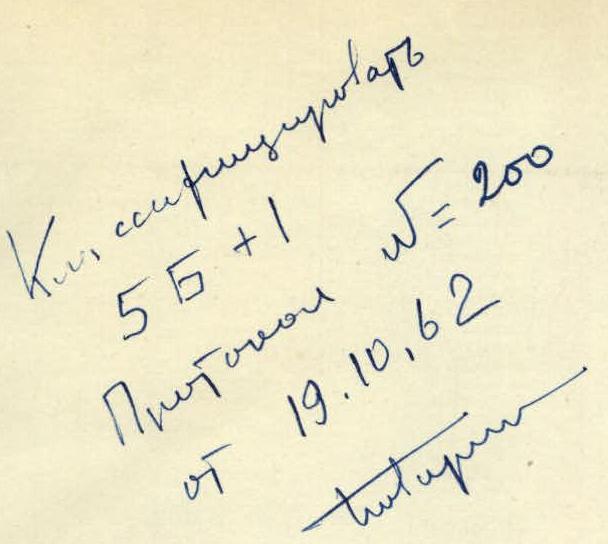 Классифицировать
5Б+1
Протокол № 200
от 19.10.62